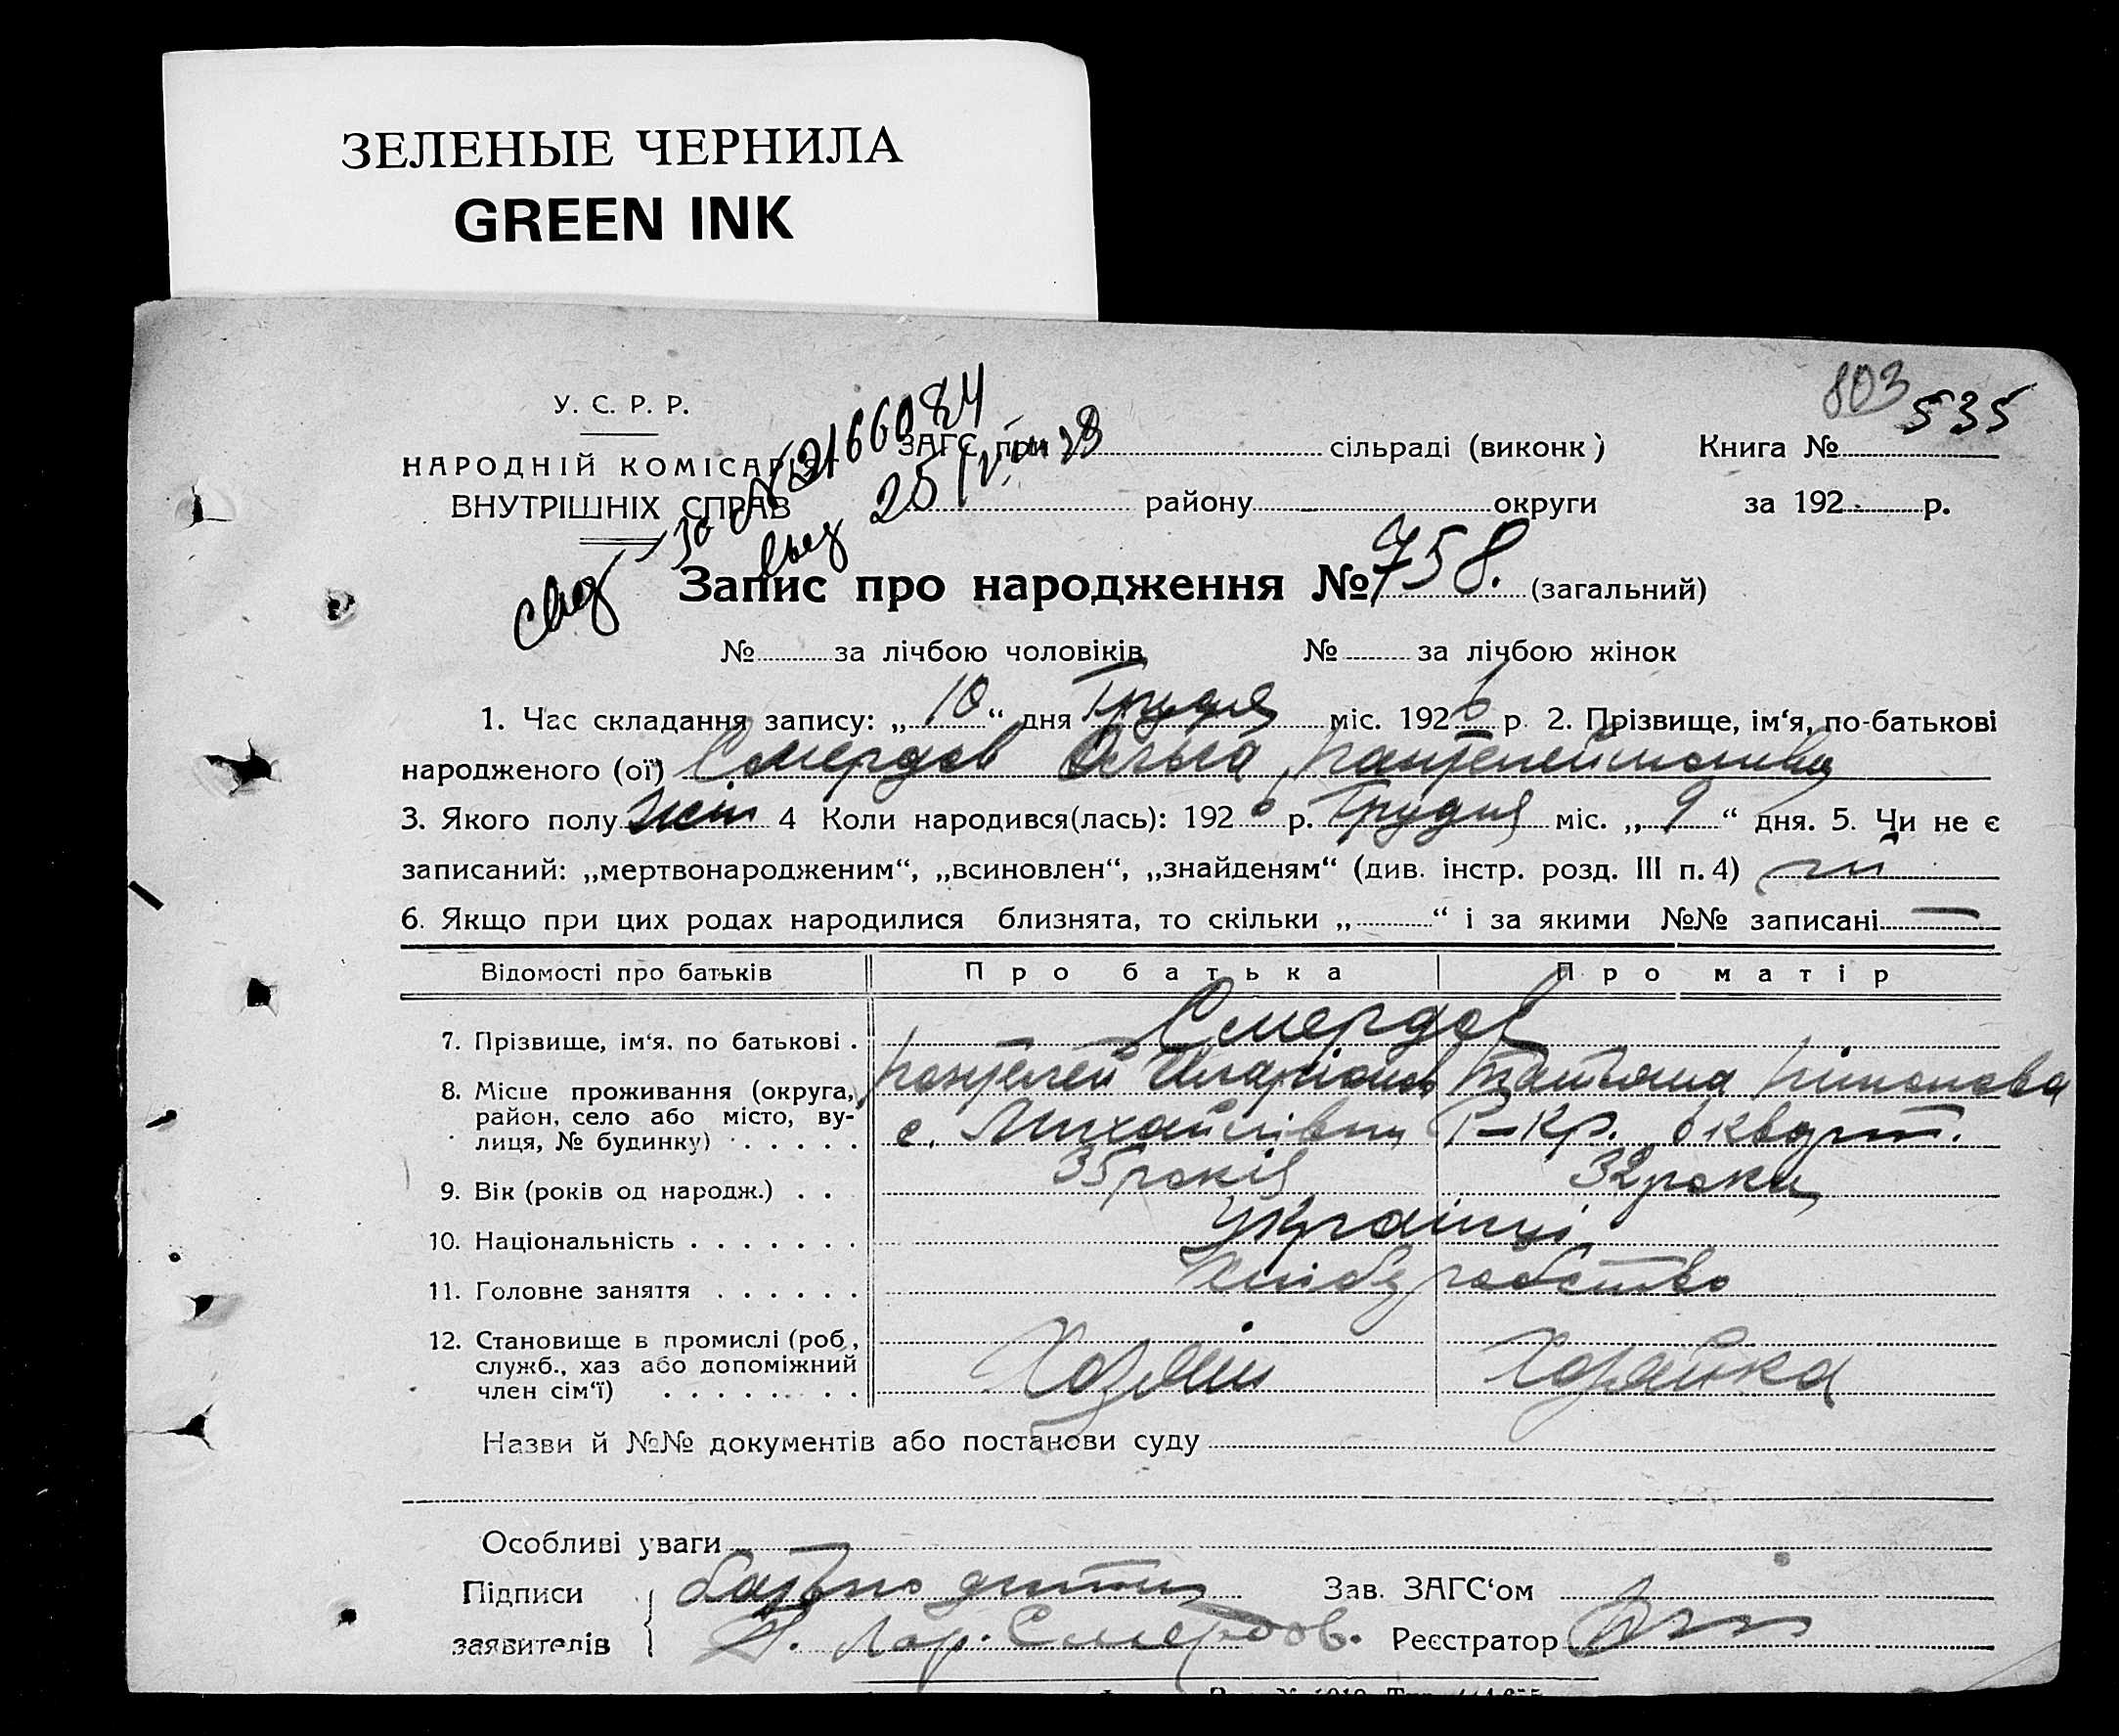 ЗЕЛЕНЫЕ ЧЕРНИЛА
GREEN INK
803 535
У. С. Р. Р.
НАРОДНІЙ КОМІСАРІЯТ
ВНУТРІШНІХ СПРАВ
ЗАГС при сільраді (виконк) Книга №
району округи за 192 р.
2166084
25
Запис про народження № 758. (загальний)
№ за лічбою чоловіків № за лічбою жінок
1. Час складання запису: „10“ дня Грудня міс. 1926 р. 2. Прізвище, ім‘я, по-батькові
народженого (ої) Смердов Ольга Пантелеймонівна
3. Якого полу жін 4 Коли народився(лась): 1926 р. Грудня міс. „9“ дня. 5. Чи не є
записаний: „мертвонародженим“, „всиновлен“, „знайденям“ (див. інстр. розд. III п. 4) ні
6. Якщо при цих родах народилися близнята, то скільки „ “ і за якими №№ записані —
Відомості про батьків Про батька Про матір
7. Прізвище, ім‘я, по батькові . Смердов
Пантелей Татьяна
8. Місце проживання (округа, район, село або місто, вулиця, № будинку) . . . . . с. Михайлівки
9. Вік (років од народж.) . . 35 років 32 роки
10. Національність . . . . . . . Українці
11. Головне заняття . . . . . . Хліборобство
12. Становище в промислі (роб., служб., хаз або допоміжний член сім‘ї) . . . . . . . . Хозяїн Хозяйка
Назви й №№ документів або постанови суду
Особливі уваги
Підписи батько дитини Зав. ЗАГС‘ом
заявителів Смердов. Реєстратор